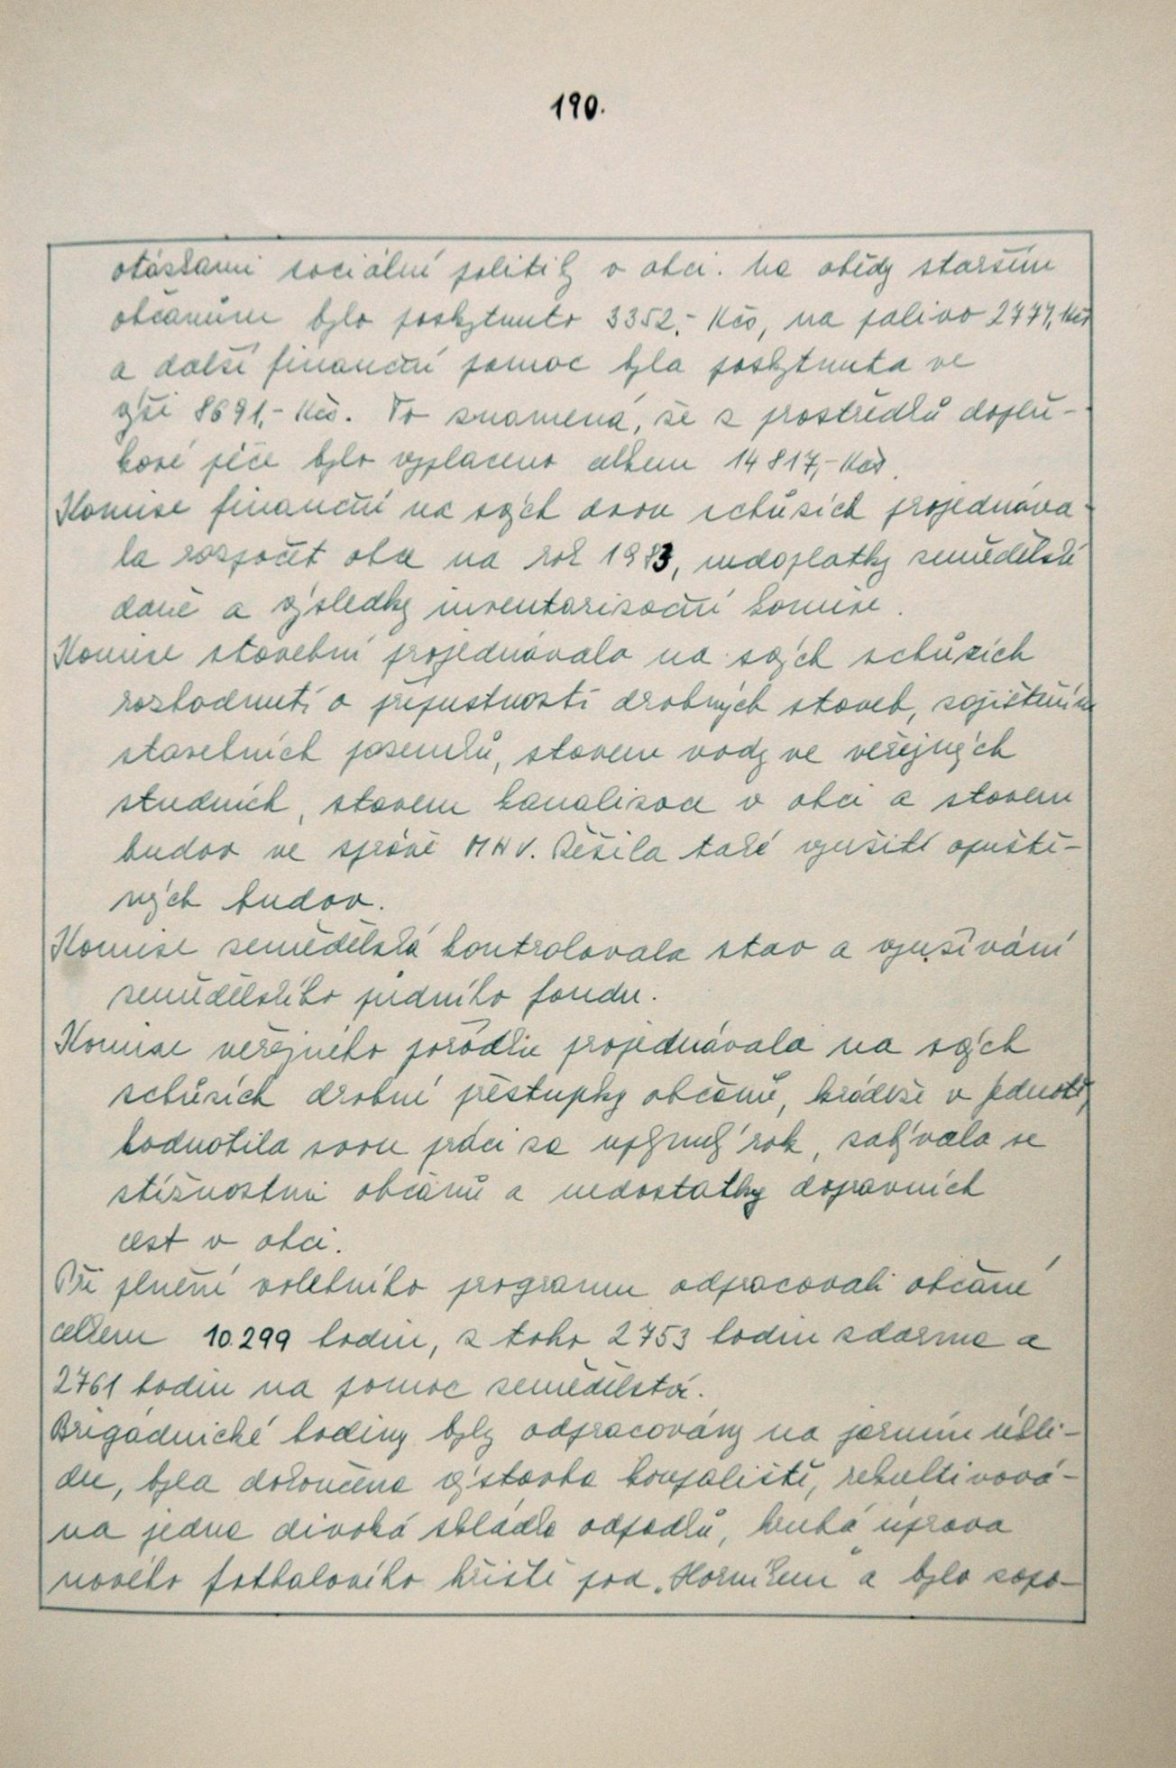 190.
otázkami sociální politiky v obci. Na obědy starším
občanům bylo poskytnuto 3352,- Kčs, na palivo 2774,- Kčs
a další finanční pomoc byla poskytnuta ve
výši 8691,- Kčs. To znamená, že z prostředků doplň-
kové péče bylo vyplaceno celkem 14 817,- Kčs.
Komise finanční na svých dvou schůzích projednáva-
la rozpočet obce na rok 1983, nedoplatky zemědělské
daně a výsledky inventarizační komise.
Komise stavební projednávala na svých schůzích
rozhodnutí o přípustnosti drobných staveb, zajištěním
stavebních pozemků, stavem vody ve veřejných
studních, stavem kanalizace v obci a stavem
budov ve správě MNV. Řešila také využití opuště-
ných budov.
Komise zemědělská kontrolovala stav a využívání
zemědělského půdního fondu.
Komise veřejného pořádku projednávala na svých
schůzích drobné přestupky občanů, krádeže v Jednotě,
hodnotila svou práci za uplynulý rok, zabývala se
stížnostmi občanů a nedostatky dopravních
cest v obci.
Při plnění volebního programu odpracovali občané
celkem 10.299 hodin, z toho 2753 hodin zdarma a
2761 hodin na pomoc zemědělství.
Brigádnické hodiny byly odpracovány na jarním úkli-
du, byla dokončena výstavba koupaliště, rekultivová-
na jedna divoká skládka odpadků, hrubá úprava
nového fotbalového hřiště pod „Horníkem" a bylo zapo-